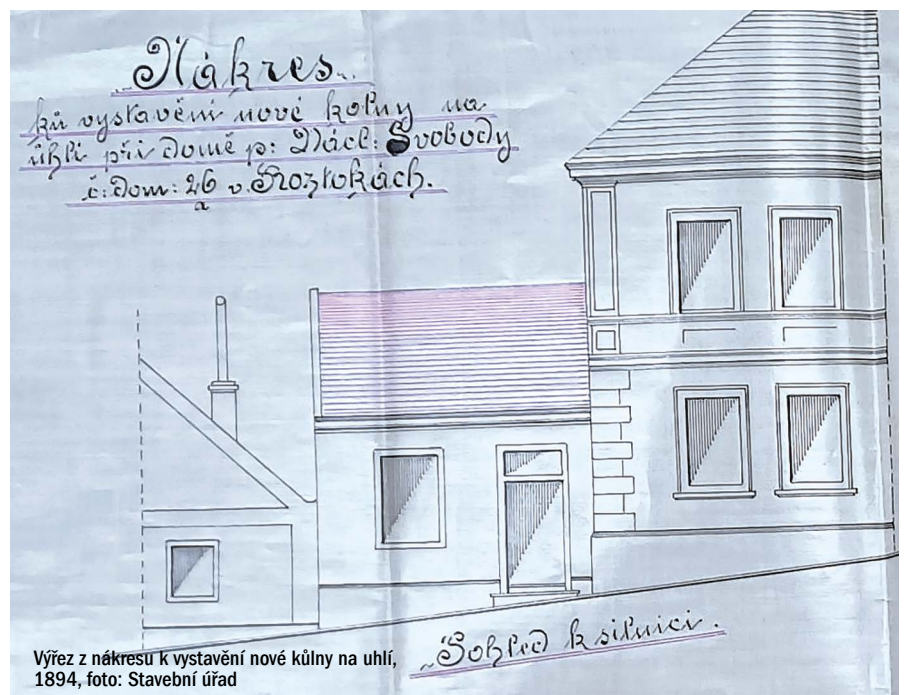 „Nákres„
ků vystavění nové kolny na
ühlí při domě p: Václ: Svobody
č: dom: 26 v Roztokách.
a
„Pohled k silnici.
Výřez z nákresu k vystavění nové kůlny na uhlí,
1894, foto: Stavební úřad